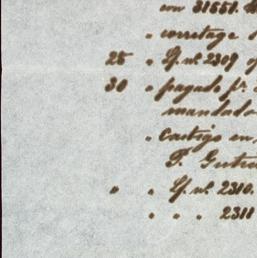 con 31551.
" corretage
25 " Lf. nº 2309
30 " pagado pr.
mandado
" castigo en
F.
" " Lf. nº 2310.
" " " 2311